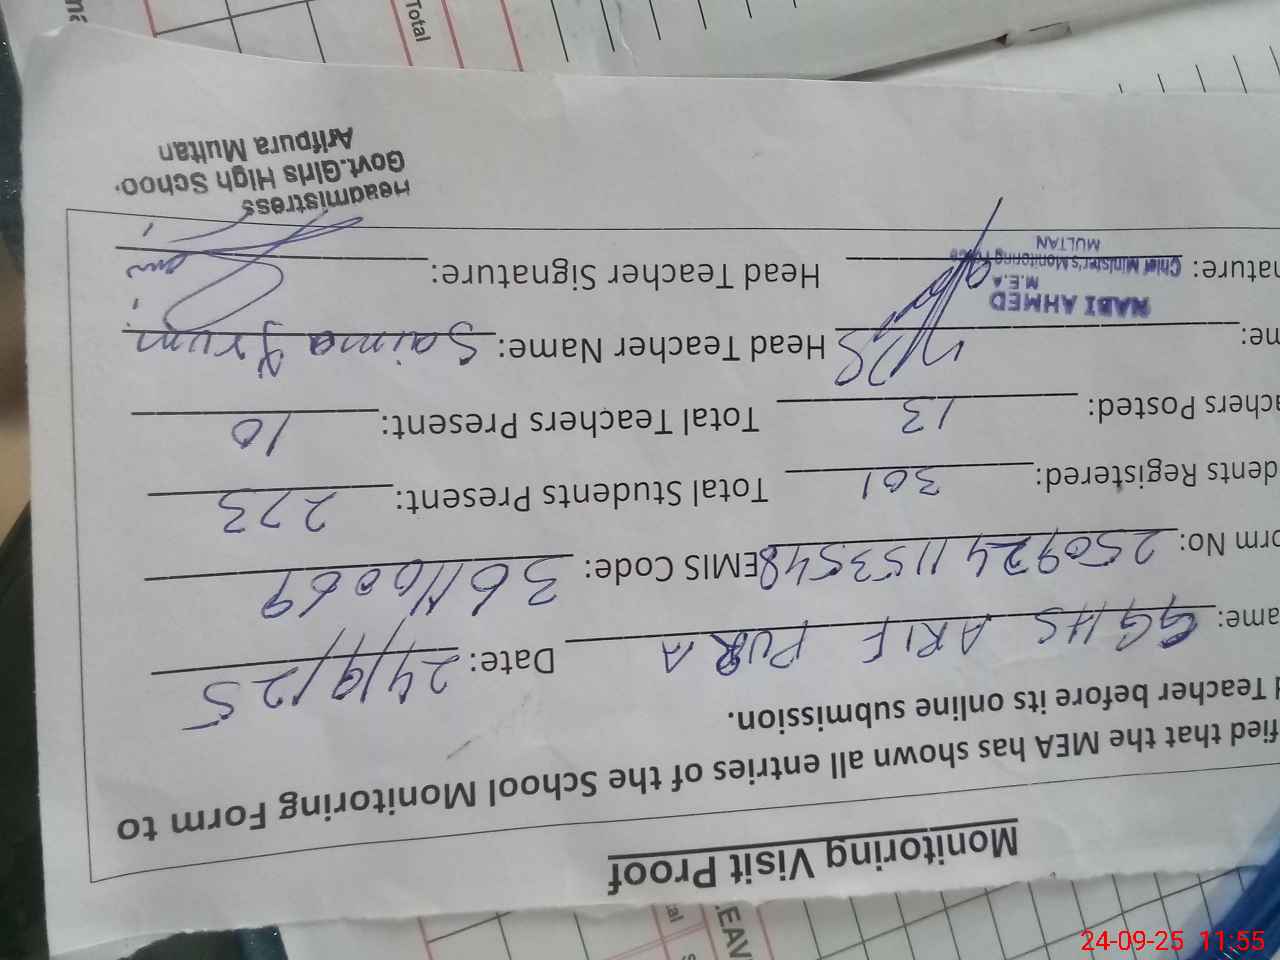 Monitoring Visit Proof
fied that the MEA has shown all entries of the School Monitoring Form to
Teacher before its online submission.
ame: GGHS ARIF PURA Date: 24/9/25
orm No: 2509241153548 EMIS Code: 36116069
dents Registered: 301 Total Students Present: 273
achers Posted: 13 Total Teachers Present: 10
me: Head Teacher Name: Saima Irum
NABI AHMED
M.E.A
Chief Minister's Monitoring Force
MULTAN
nature: Head Teacher Signature:
Headmistress
Govt.Girls High School
Arifpura Multan
Total
LEAV
24-09-25 11:55